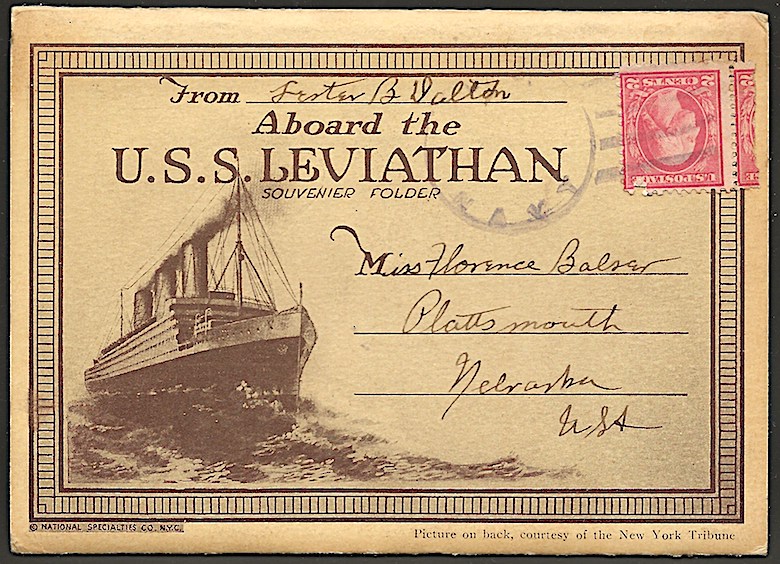 From Lester B Dalton
Aboard the
U.S.S. LEVIATHAN
SOUVENIER FOLDER
NAVY
2 CENTS 2
U.S. POSTAGE
Miss Florence Balser
Plattsmouth
Nebraska
USA
© NATIONAL SPECIALTIES CO. N.Y.C.
Picture on back, courtesy of the New York Tribune